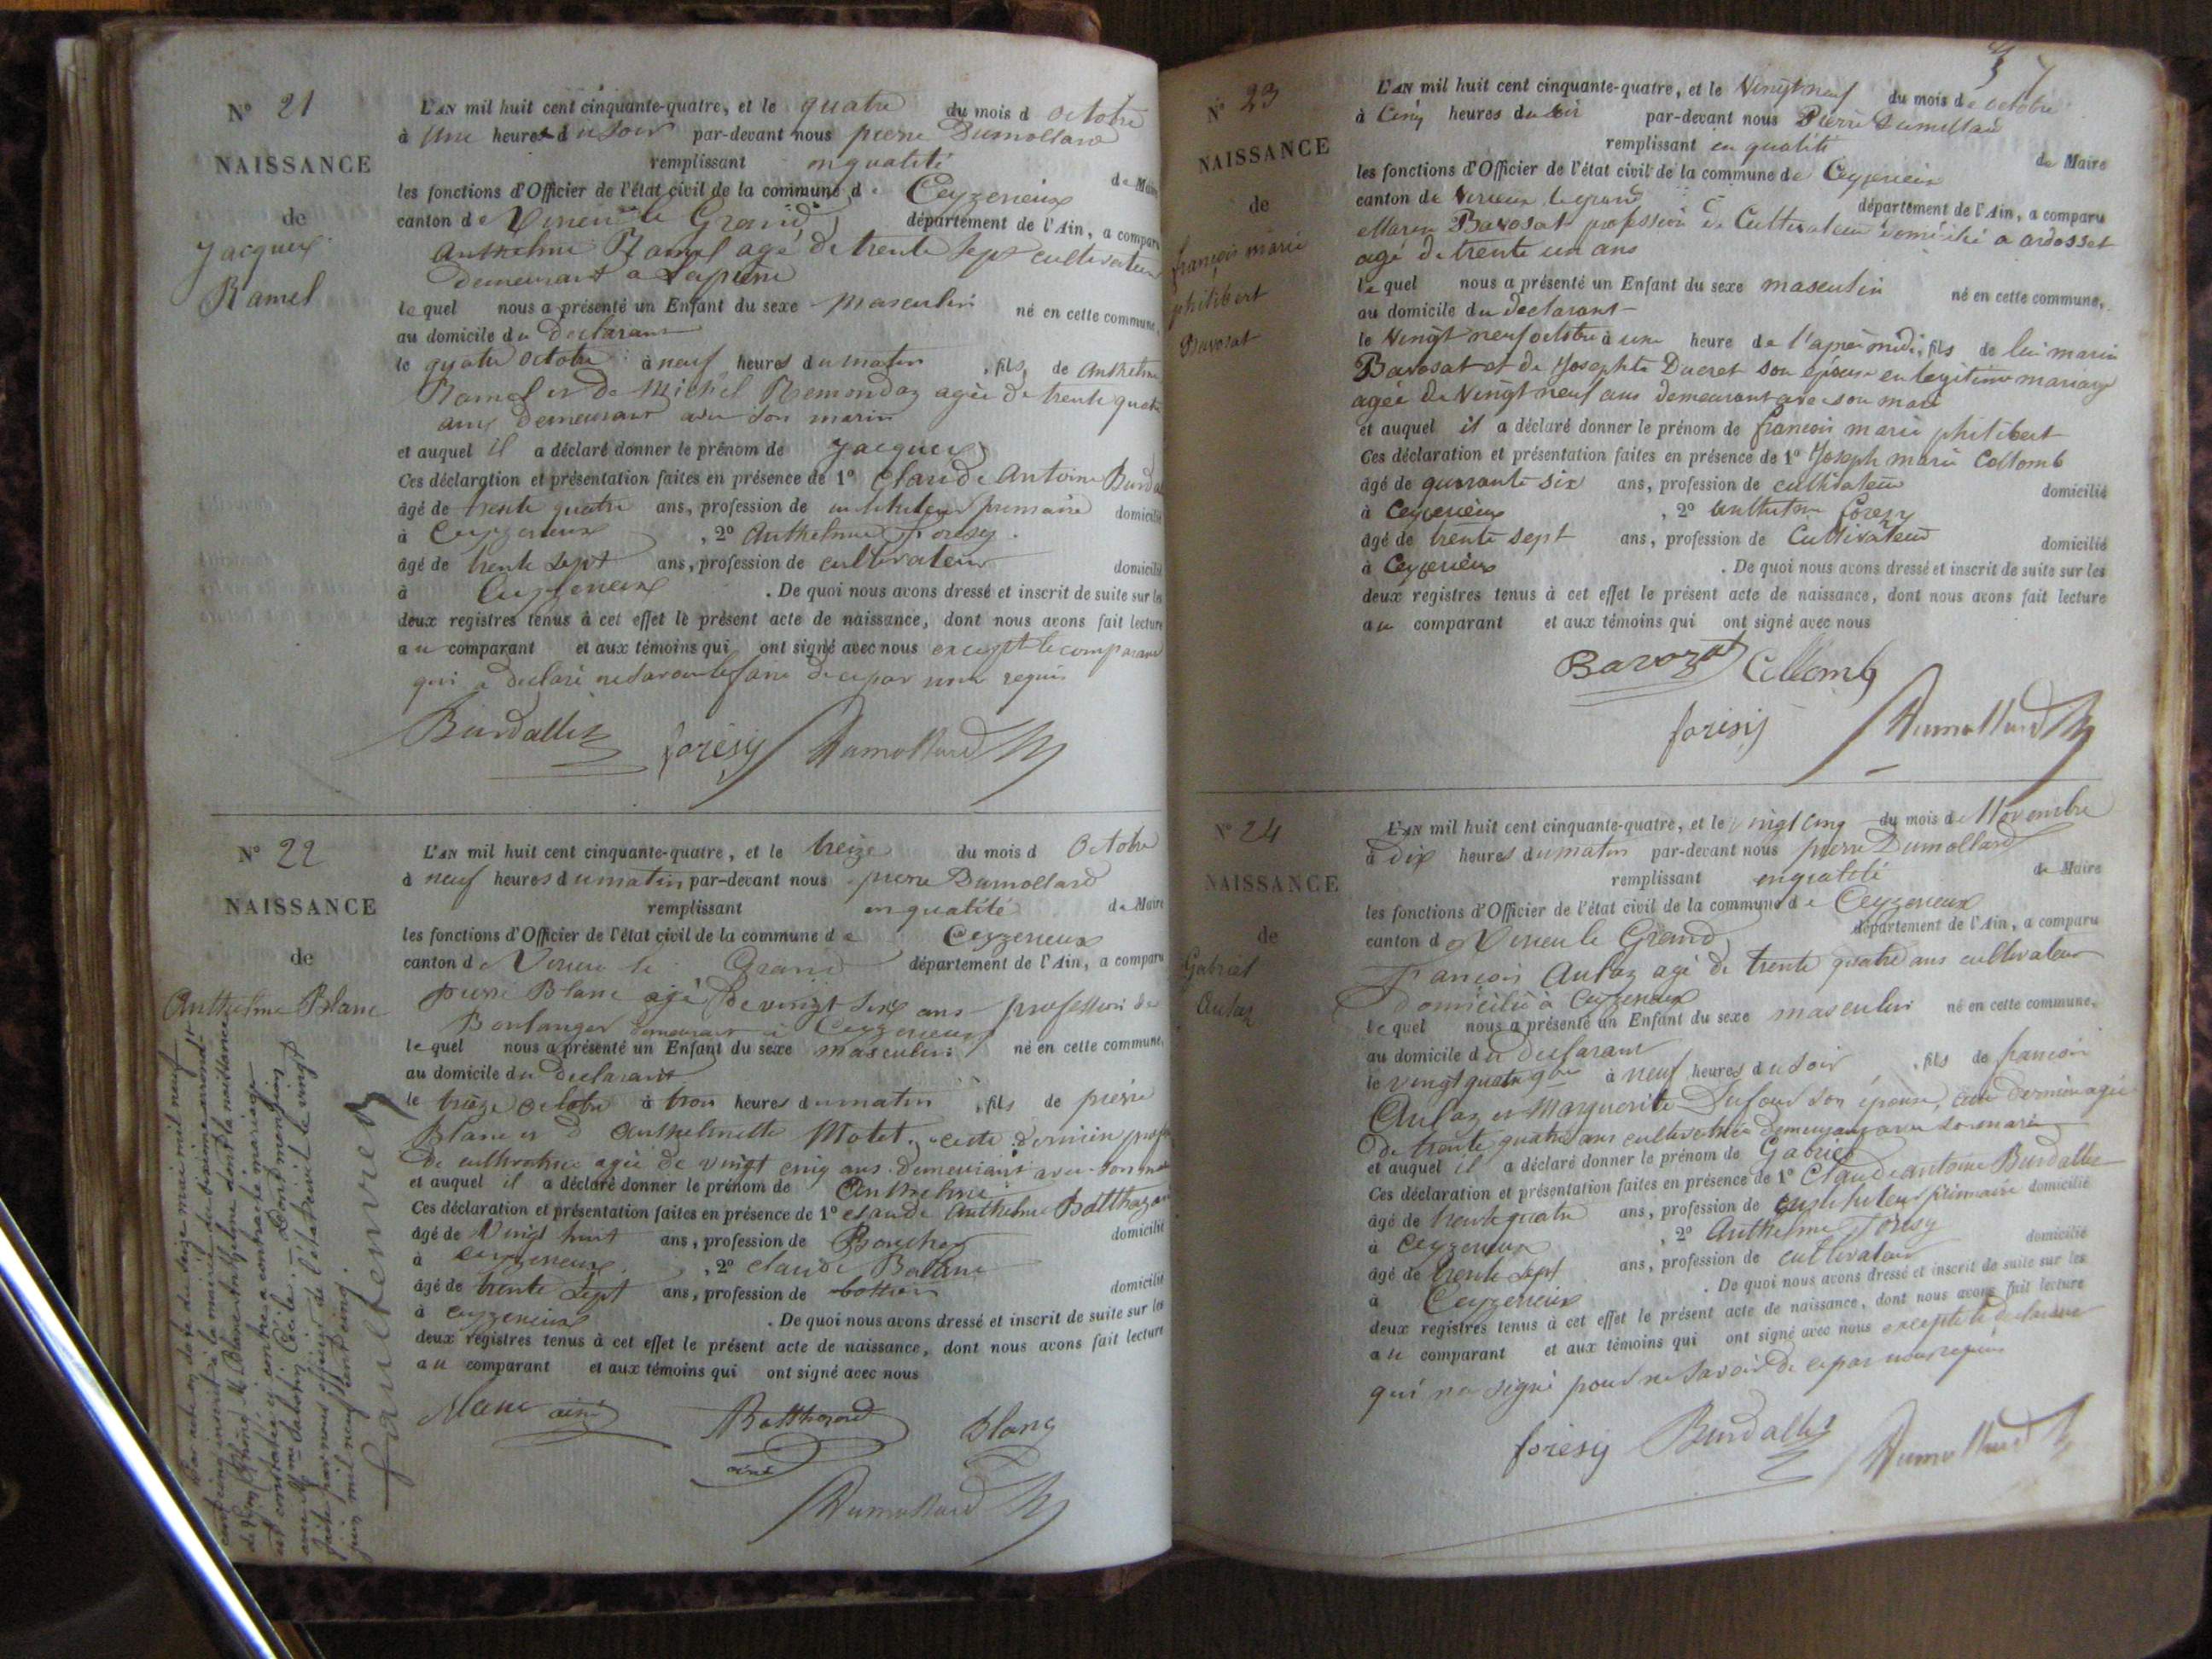 N° 21
NAISSANCE
de
Jacques
Ramel
L'AN mil huit cent cinquante-quatre, et le quatre du mois d Octobre
à une heures du soir par-devant nous pierre Dumollard
remplissant en qualité de Maire
les fonctions d'Officier de l'état civil de la commune de Ceyzerieux
canton de Virieu le Grand, département de l'Ain, a comparu
Anthelme Ramel agé de trente sept cultivateur
demeurant a Lapierre
lequel nous a présenté un Enfant du sexe masculin né en cette commune,
au domicile du Declarant
le quatre Octobre à neuf heures du matin, fils de Anthelme
Ramel et de Michel Remondaz agée de trente quatre
ans demeurant avec son marin
et auquel il a déclaré donner le prénom de Jacques
Ces déclaration et présentation faites en présence de 1° Claude Antoine Burdal
âgé de trente quatre ans, profession de instituteur primaire domicilié
à Ceyzerieux, 2° Anthelme Foresy
âgé de trente sept ans, profession de cultivateur domicilié
à Ceyzerieux. De quoi nous avons dressé et inscrit de suite sur les
deux registres tenus à cet effet le présent acte de naissance, dont nous avons fait lecture
au comparant et aux témoins qui ont signé avec nous excepté le comparant
qui a declaré ne savoir le faire de ce par nous requis
Burdallet foresy Dumollard
N° 22
NAISSANCE
de
Anthelme Blanc
L'AN mil huit cent cinquante-quatre, et le treize du mois d Octobre
à neuf heures du matin par-devant nous pierre Dumollard
remplissant en qualité de Maire
les fonctions d'Officier de l'état civil de la commune de Ceyzerieux
canton de Virieu le Grand département de l'Ain, a comparu
pierre Blanc agé de vingt six ans profession de
Boulanger demeurant à Ceyzerieux
lequel nous a présenté un Enfant du sexe masculin né en cette commune,
au domicile du Declarant
le treize Octobre à trois heures du matin, fils de pierre
Blanc et d Anthelmette Motet, cette derniere
de cultivatrice agée de vingt cinq ans demeurant avec son
et auquel il a déclaré donner le prénom de Anthelme
Ces déclaration et présentation faites en présence de 1° Claude Anthelme Balthazard
âgé de Vingt huit ans, profession de Boucher domicilié
à ceyzerieux, 2° Claude Balanc
âgé de trente sept ans, profession de domicilié
à ceyzerieux. De quoi nous avons dressé et inscrit de suite sur les
deux registres tenus à cet effet le présent acte de naissance, dont nous avons fait lecture
au comparant et aux témoins qui ont signé avec nous
Blanc ainé Balthazard ainé Blanc
Dumollard
Par acte en date du seize mai mil neuf
cent cinq inscrit à la mairie du troisième arrond.t
de Lyon (Rhône) M. Blanc Anthelme dont la naissance
est constatée ci contre a contracté mariage
avec M.me Cécile. — Dont mention
faite par nous officier de l'état civil le vingt
juin mil neuf cent cinq.
N° 23
NAISSANCE
de
françois marie
philibert
Bavosat
37
L'AN mil huit cent cinquante-quatre, et le Vingt neuf du mois de octobre
à Cinq heures du soir par-devant nous Pierre Dumollard
remplissant en qualité de Maire
les fonctions d'Officier de l'état civil de la commune de Ceyzerieux
canton de Virieux le grand département de l'Ain, a comparu
Marin Bavosat profession de Cultivateur domicilié a ardosset
agé de trente un ans
lequel nous a présenté un Enfant du sexe masculin né en cette commune,
au domicile du declarant
le Vingt neuf octobre à une heure de l'apres midi, fils de lui marin
Bavosat et de Josephte Ducret son épouse en legitime mariage
agée de Vingt neuf ans demeurant avec son mari
et auquel il a déclaré donner le prénom de francois marie philibert
Ces déclaration et présentation faites en présence de 1° Joseph marie Collomb
âgé de quarante six ans, profession de cultivateur domicilié
à Ceyzerieux, 2° Anthelme foresy
âgé de trente sept ans, profession de Cultivateur domicilié
à Ceyzerieux. De quoi nous avons dressé et inscrit de suite sur les
deux registres tenus à cet effet le présent acte de naissance, dont nous avons fait lecture
au comparant et aux témoins qui ont signé avec nous
Bavozat Collomb
foresy Dumollard
N° 24
NAISSANCE
de
Gabriel
Aulaz
L'AN mil huit cent cinquante-quatre, et le vingt cinq du mois de Novembre
à Dix heures du matin par-devant nous pierre Dumollard
remplissant en qualité de Maire
les fonctions d'Officier de l'état civil de la commune de Ceyzerieux
canton de Virieu le Grand département de l'Ain, a comparu
François Aulaz agé de trente quatre ans cultivateur
domicilié à Ceyzerieux
lequel nous a présenté un Enfant du sexe masculin né en cette commune,
au domicile du Declarant
le vingt quatre 9bre à neuf heures du soir, fils de francois
Aulaz et Marguerite Dufour son épouse, cette derniere agée
de trente quatre ans cultivatrice demeurant avec son mari
et auquel il a déclaré donner le prénom de Gabriel
Ces déclaration et présentation faites en présence de 1° Claude antoine Burdallet
âgé de trente quatre ans, profession de instituteur primaire domicilié
à Ceyzerieux, 2° Anthelme Foresy
âgé de trente sept ans, profession de cultivateur domicilié
à Ceyzerieux. De quoi nous avons dressé et inscrit de suite sur les
deux registres tenus à cet effet le présent acte de naissance, dont nous avons fait lecture
au comparant et aux témoins qui ont signé avec nous excepté le declarant
qui na signé pour ne savoir de ce par nous requis
foresy Burdallet Dumollard